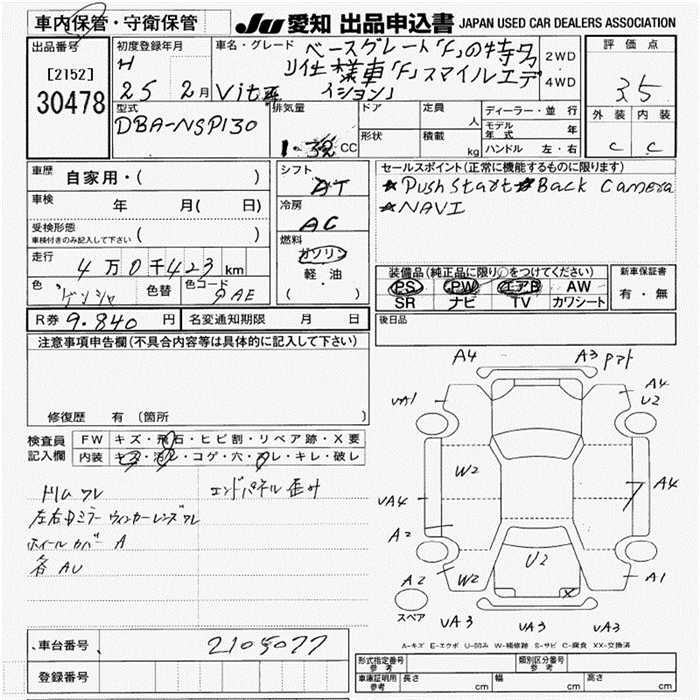 車内保管・守衛保管
JU 愛知 出品申込書 JAPAN USED CAR DEALERS ASSOCIATION
出品番号
[2152]
30478
初度登録年月
H
25 2月
車名・グレード
ベースグレード「F」の特別
仕様車「F」スマイルエデ
ィション」
Vitz
2WD
4WD
評価点
3.5
外装 内装
C C
型式
DBA-NSP130
排気量
1.3 CC
ドア
形状
定員 人
積載 kg
ディーラー・並行
モデル年式 年
ハンドル 左・右
車歴 自家用・( )
車検 年 月( 日)
受検形態
車検付きのみ記入して下さい ( )
走行 4万0千423km
色 色替 色コード
シフト
AT
冷房
AC
燃料
ガソリン
軽・油
( )
セールスポイント(正常に機能するものに限ります)
★Push Start ★Back Camera
★NAVI
装備品(純正品に限り○をつけてください)
PS PW エアB AW
SR ナビ TV カワシート
新車保証書
有・無
R券 9.840円 名変通知期限 月 日
後日品
注意事項申告欄(不具合内容等は具体的に記入して下さい)
修復歴 有(箇所
検査員記入欄
FW キズ・飛石・ヒビ割・リペア跡・X要
内装 キズ・汚レ・コゲ・穴・スレ・キレ・破レ
トリム ワレ エンドパネル歪み
左右ドミラーウィンカーレンズワレ
ホイールカバー A
各 AU
A4 A3
UA1 A4
U2
W2
UA4 A4
A2
U2
A2 W2 X A1
スペア
UA3 UA3 UA3
A-キズ E-エクボ U-凹み W-補修跡 S-サビ C-腐食 XX-交換済
車台番号 2105077
登録番号
形式指定番号 参考 類別区分番号 参考
車庫証明用 参考 長さ cm 幅 cm 高さ cm